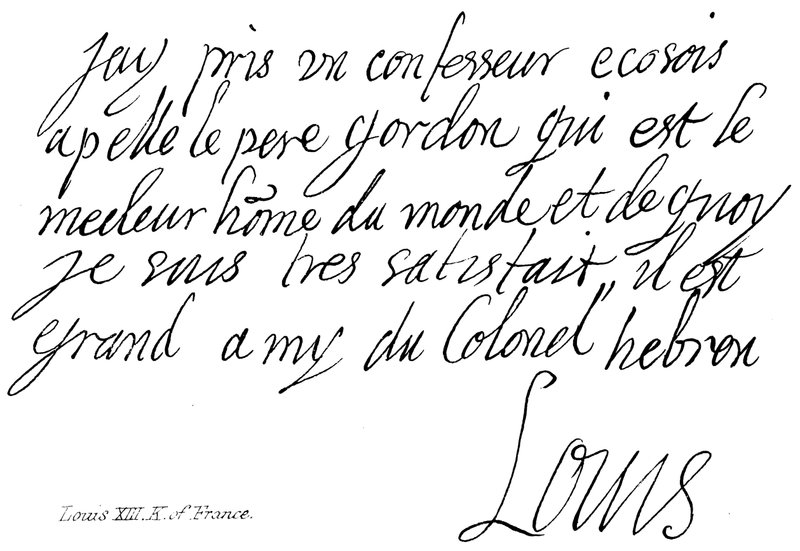 jay pris vn confesseur ecosois
apelle le pere gordon qui est le
meeleur hõme du monde et de quoy
je suis tres satisfait, il est
grand amy du Colonel hebron
Louis
Louis XIII. K. of France.